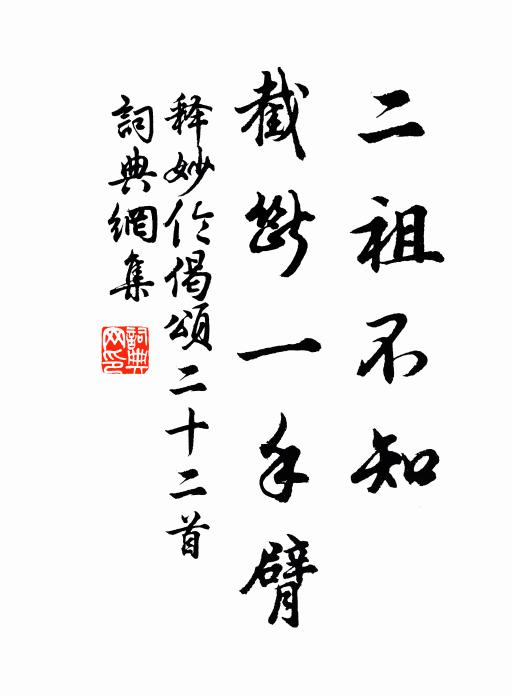 二祖不知
截斷一手臂
释妙伦偈頌二十二首
詞典網集
詞典网印